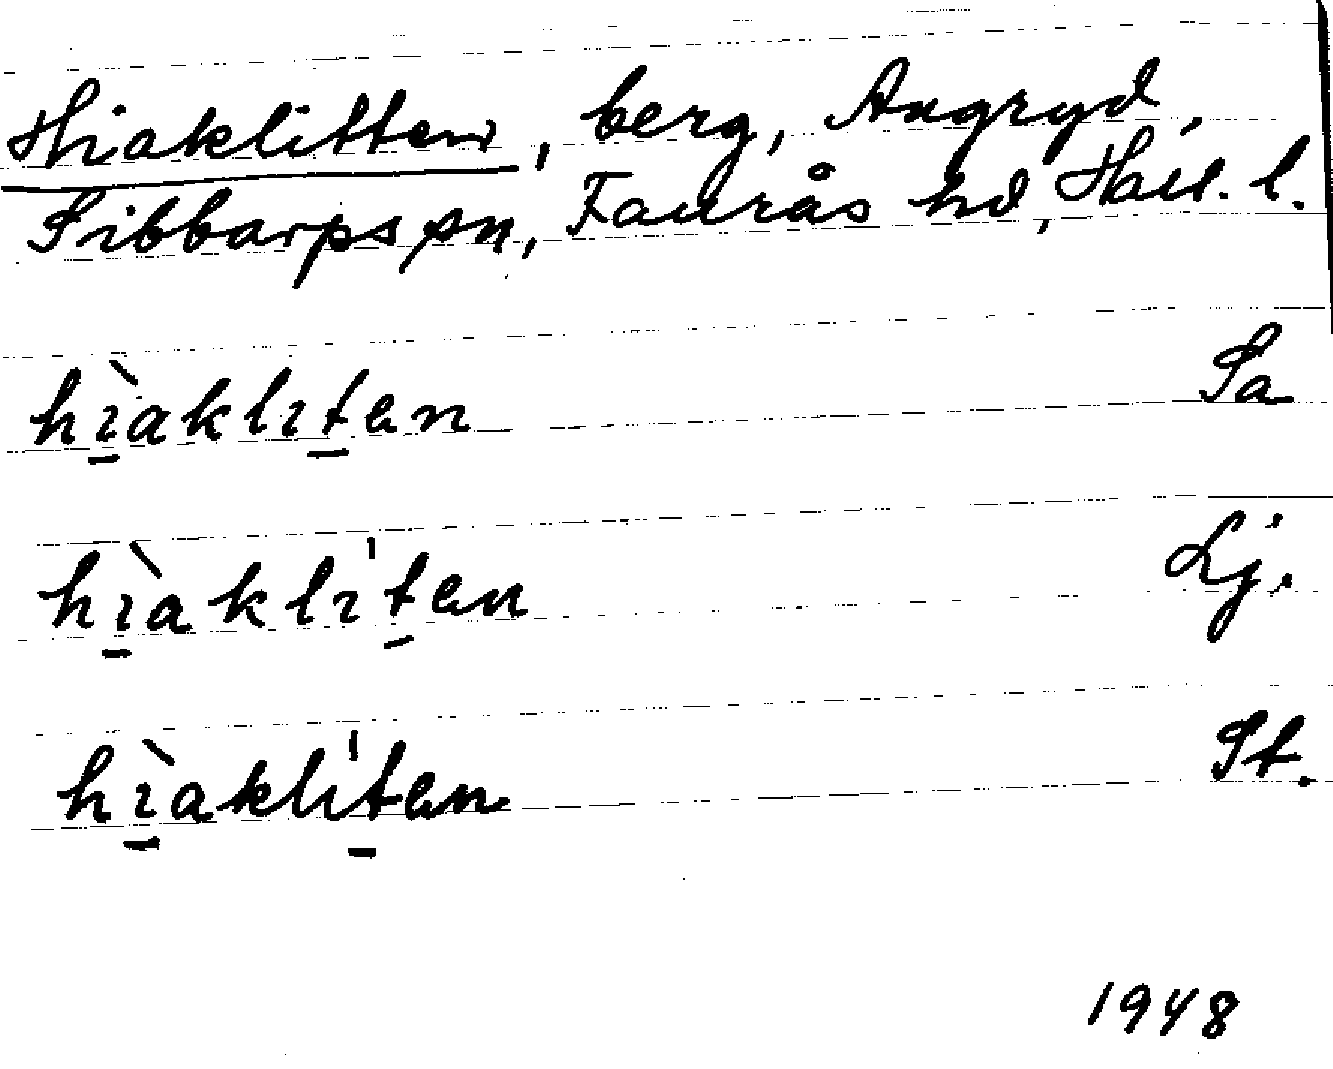 Hiaklitten, berg, Angryd,
Sibbarps sn, Faurås hd, Hall. l.
hìaklıtən Sa
hìaklı'tən Lj.
hìaklı'tən St.
1948